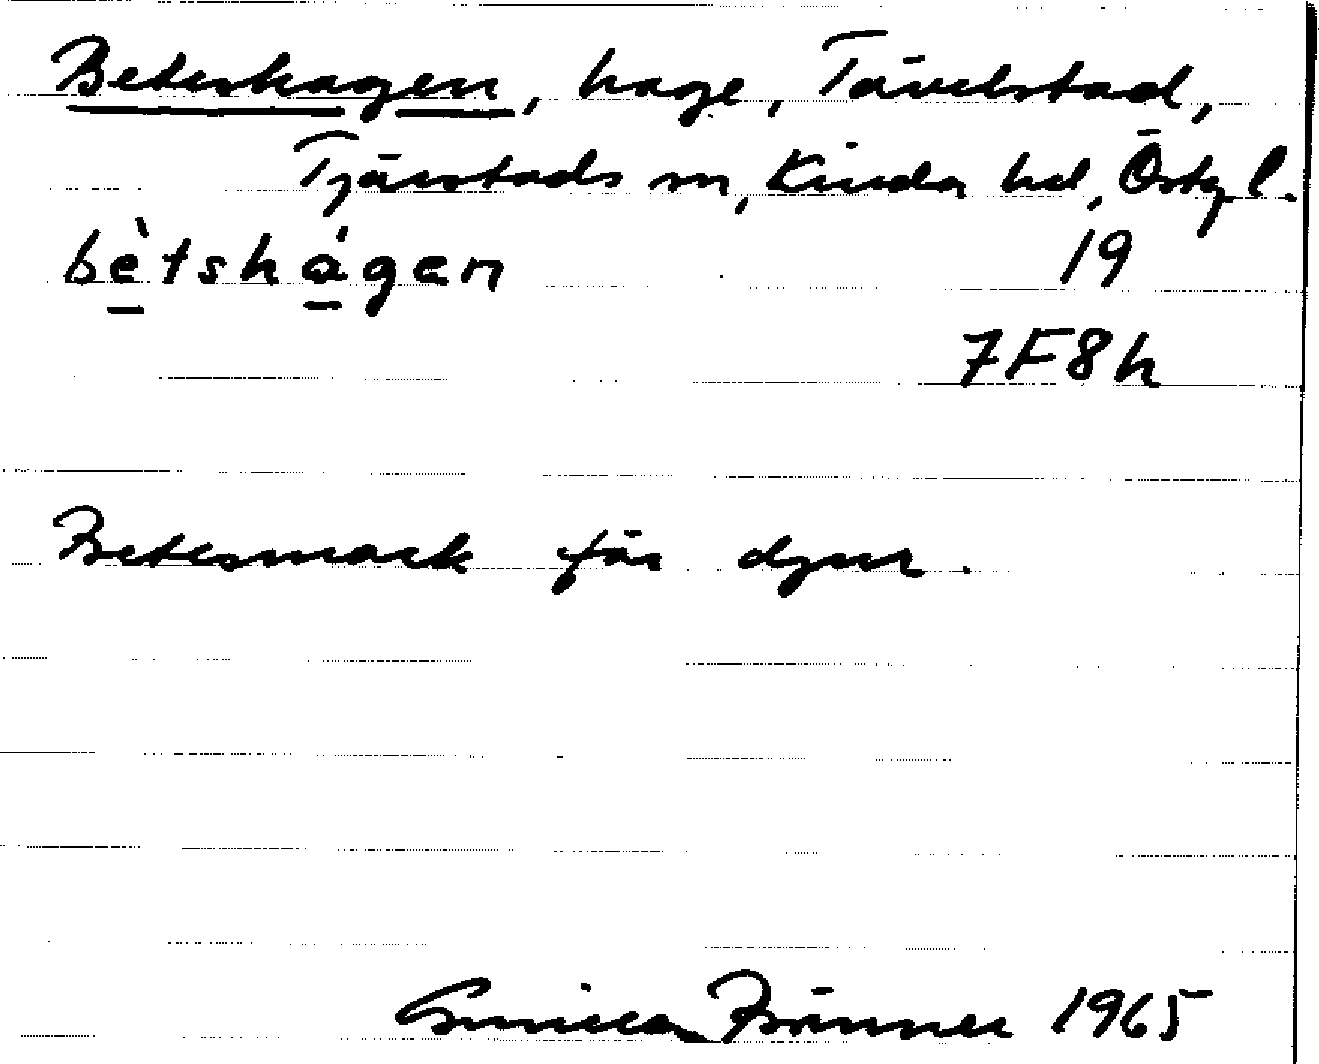 Beteshagen, hage, Tävelstad,
Tjärstads sn, Kinda hd, Östg l.
bètshágen 19
7F8h
Betesmark för djur.
Gunilla Brönner 1965